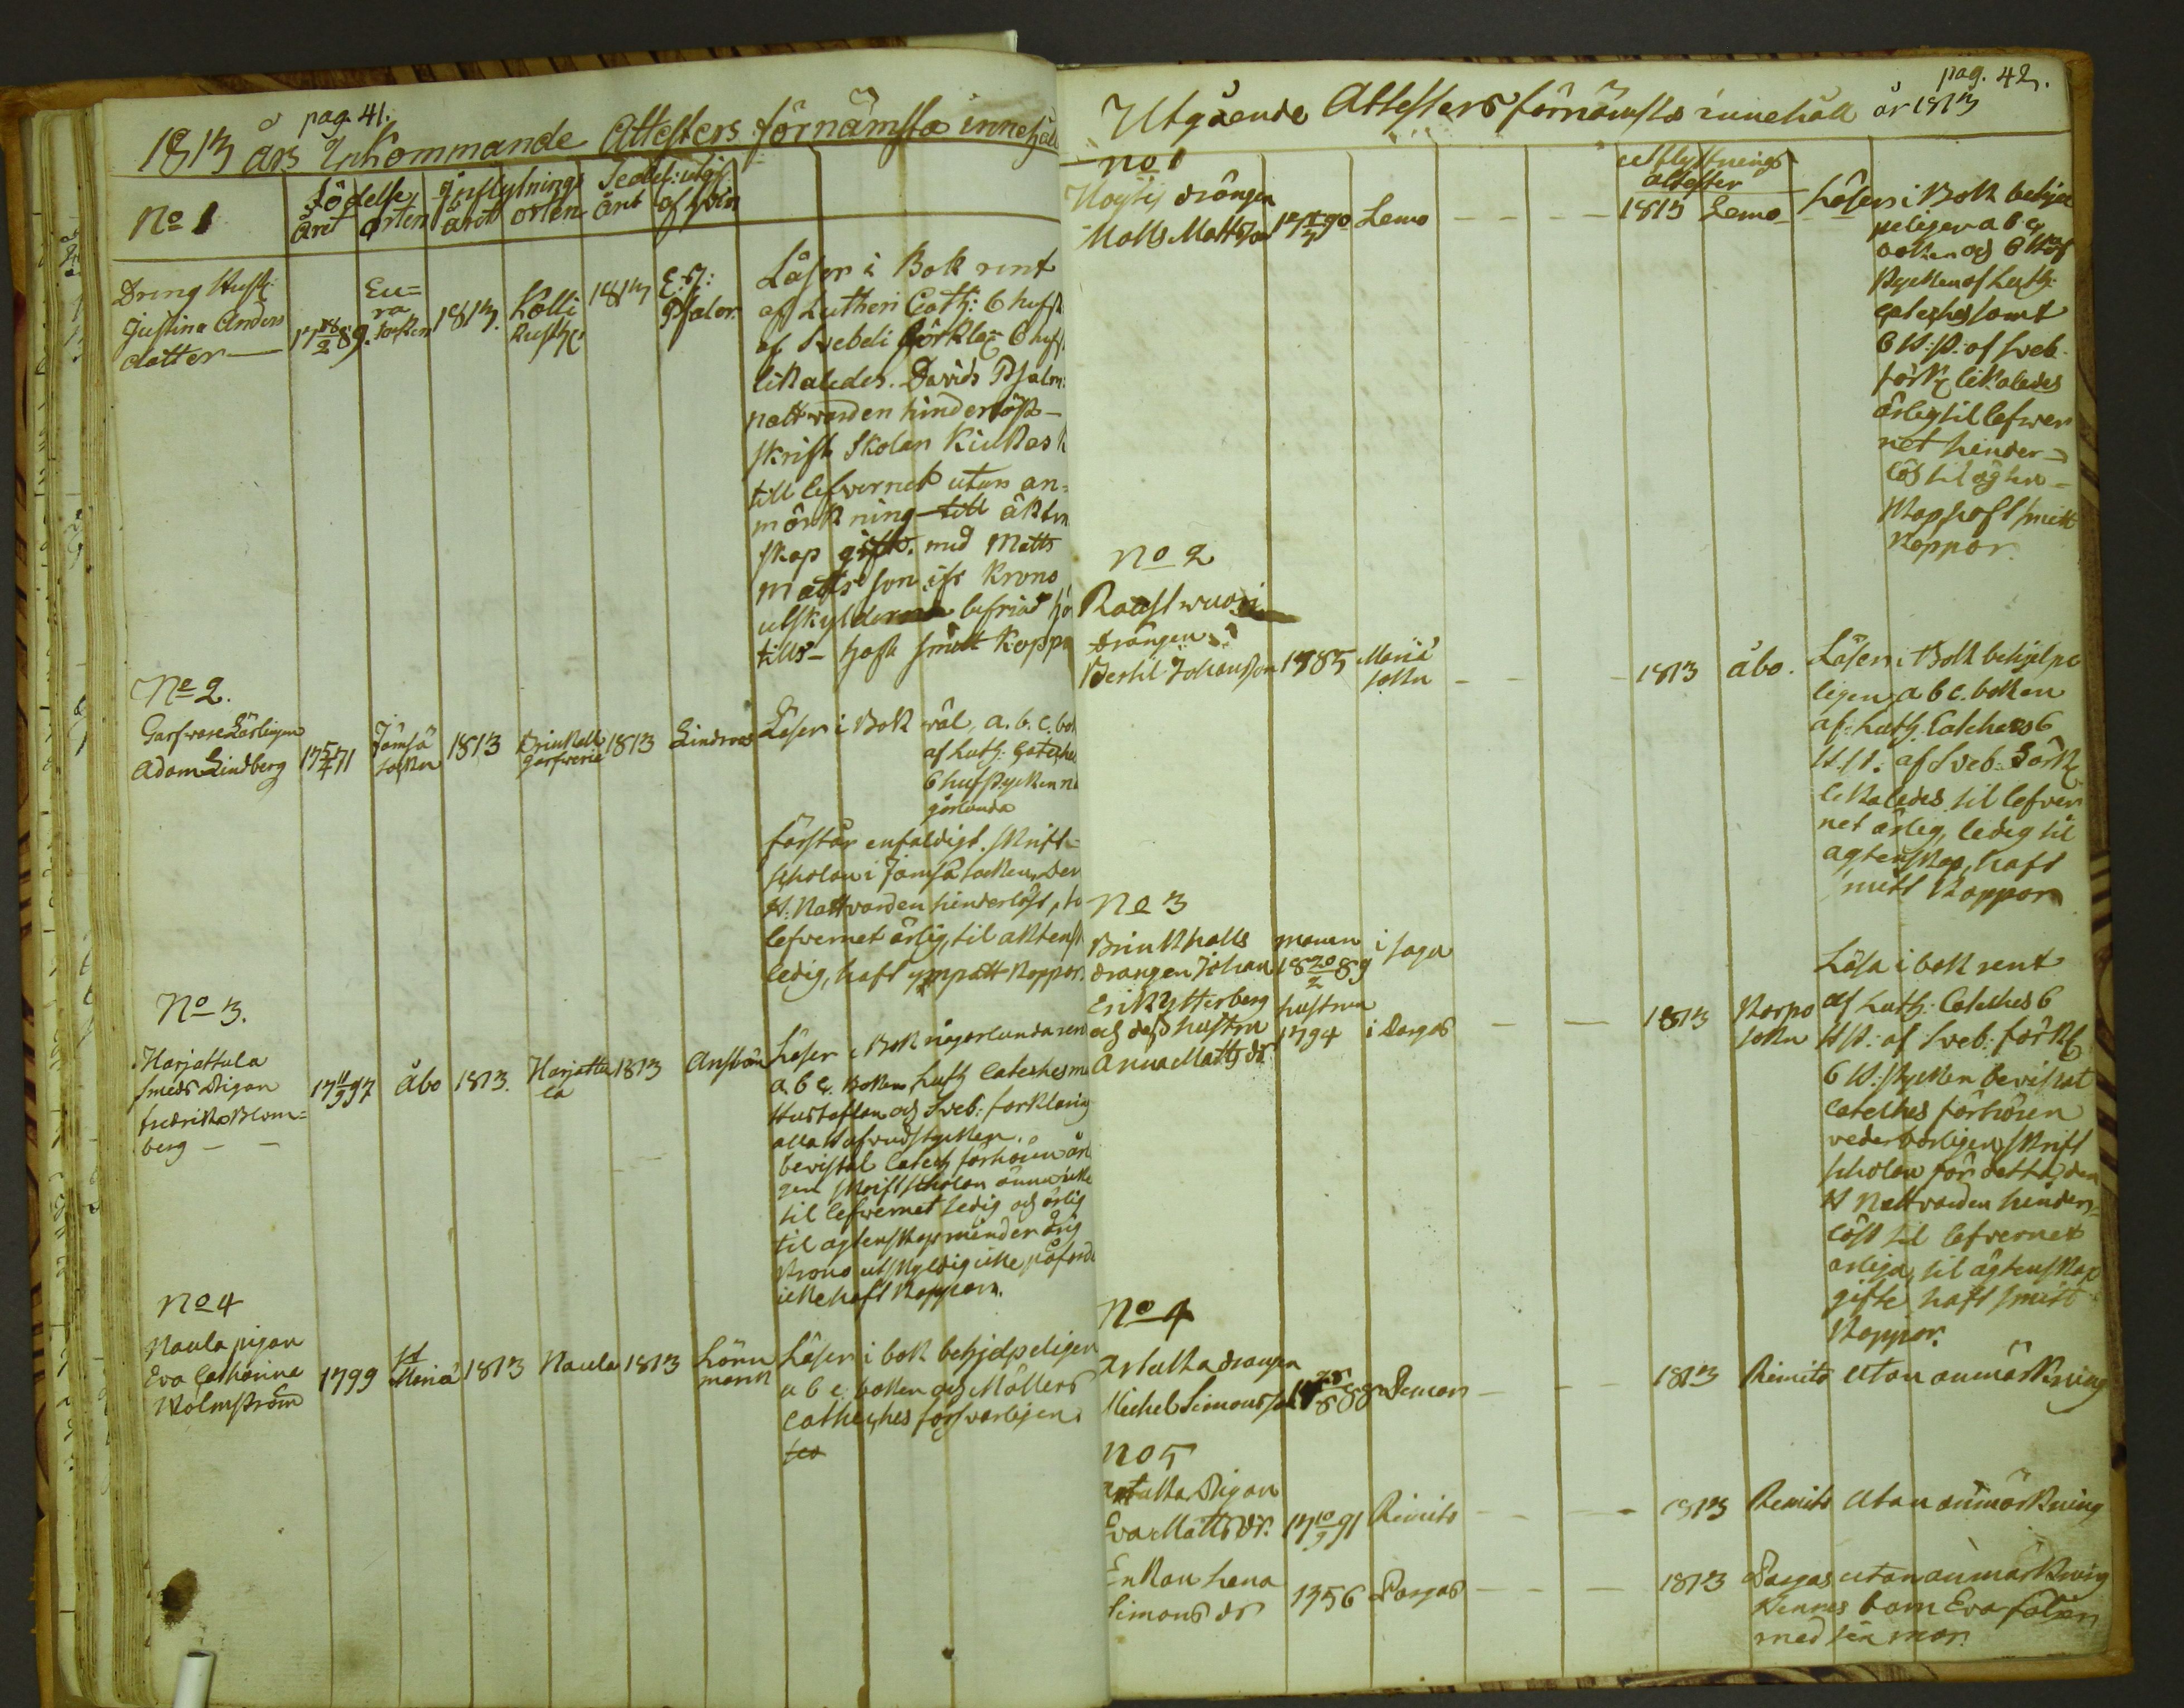 pag. 41.
1813 års Inkommande Attesters förnämsta innehåll
No 1
Födelse
året orten
Inflytnings
året orten
Sedel: utgif
året af hvem
Dreng Hust:
Justina Anders
dotter
17 18/2 89.
Eu=
ra
socken
1813.
Kolli
Rusth:
1813
E: J:
Psaler.
Läser i Bok rent
af Lutheri Cath: 6 hufst
af Svebeli förkla: 6 hufst
likaledes. Davids Psalm:
nattvarden hinderlöst
skrift Skolan Kiukas
till lefvernet utan an=
märkning till äkten
skap gift. med Matts
Matts son ifr Krono
utskylderna befriad
tills haft smitt koppor
No 2.
Garfware Lärlingen
Adam Lindberg
17 5/4 71
Jämsä
sokn
1813
Brinkall
garfverie
1813
Lindroos
Läser i Bok wäl, a. b. c. bok
af Luth: Cateches
6 hufstycken
görlunda
förstår enfaldigt. skrift=
scholan i Jämsä socken, Den
H: Nattvarden hinderlöst,
lefvernet ärlig, til äktensk
ledig, haft ympatt koppor.
No 3.
Harjattula
smeds Pigan
fredrika Blom=
berg
17 11/9 97
Åbo
1813.
Harjattu
la
1813
Anstén
Läser i Bok någorlunda ren
a b c. boken Luth Cateches
Hustaflan och Sveb: förklaring
alla Hufvudstycken.
bevistat Catech förhören ärl
gen skriftscholan ännu icke
til lefwernet sedig och ärlig
til ägtenskap minderårig
Krono utskyldig icke påförd
icke haft Kopporn.
No 4
Naula pigan
Eva Catharina
Holmström
1799
St
Mariä
1813
Naula
1813
Lönn
mark
Läser i bok behjelpeligen
a b c boken och Möllers
Catheches försvarligen
pag. 42.
Utgående Attesters förnämsta innehåll år 1813
utflyttnings
attester
No 1
drängen
Matts Mattsson
90
Lemo
1813
Lemo
Läser i Bok behjel
peligen a b c
boken och 6 H
stycken af Luth:
Cateches samt
6 H: st: af Sveb:
förk: likaledes
ärlig til lefwer
net hinder=
lös til ägten=
skap haft smitt
Koppor.
No 2
drängen
Bertil Johansson
1785
Mariä
sokn
1813
Åbo.
Läser i Bok behjelpe
ligen, a b c. boken
af: Luth: Cateches 6
H. st: af Sveb: Förk
likaledes til lefver
net ärlig, ledig til
agtenskap, haft
smitt Koppor
No 3
Brinkhalls
drängen Johan
Erik Ytterberg
och dess hustru
Anna Matts dr.
mannen i Sagu
18 20/2 89
hustrun
1794 i Pargas
1813
Korpo
sokn
Läsa i bok rent
af Luth: Cateches 6
H. st: af Sveb: förk
6 H: stycken bevistat
Catechesförhören
vederbörligen, skrift
scholan för detta, den
H Nattvarden hinder=
löst til lefvernet
ärliga, til ägtenskap
gifte haft smitt
Koppor.
No 4
Artukka drängen
Michel Simonsson
88
Pemar
1813
Rimito
Utan anmärkning
No 5
Artukka Pigan
Eva Matts dr.
17 10/9 91
Rimito
1813
Rimito
Utan anmärkning
Enkan Lena
Simons dr
1756
Pargas
1813
Pargas
utan anmärkning
Hennes barn Eva följer
med sin mor.